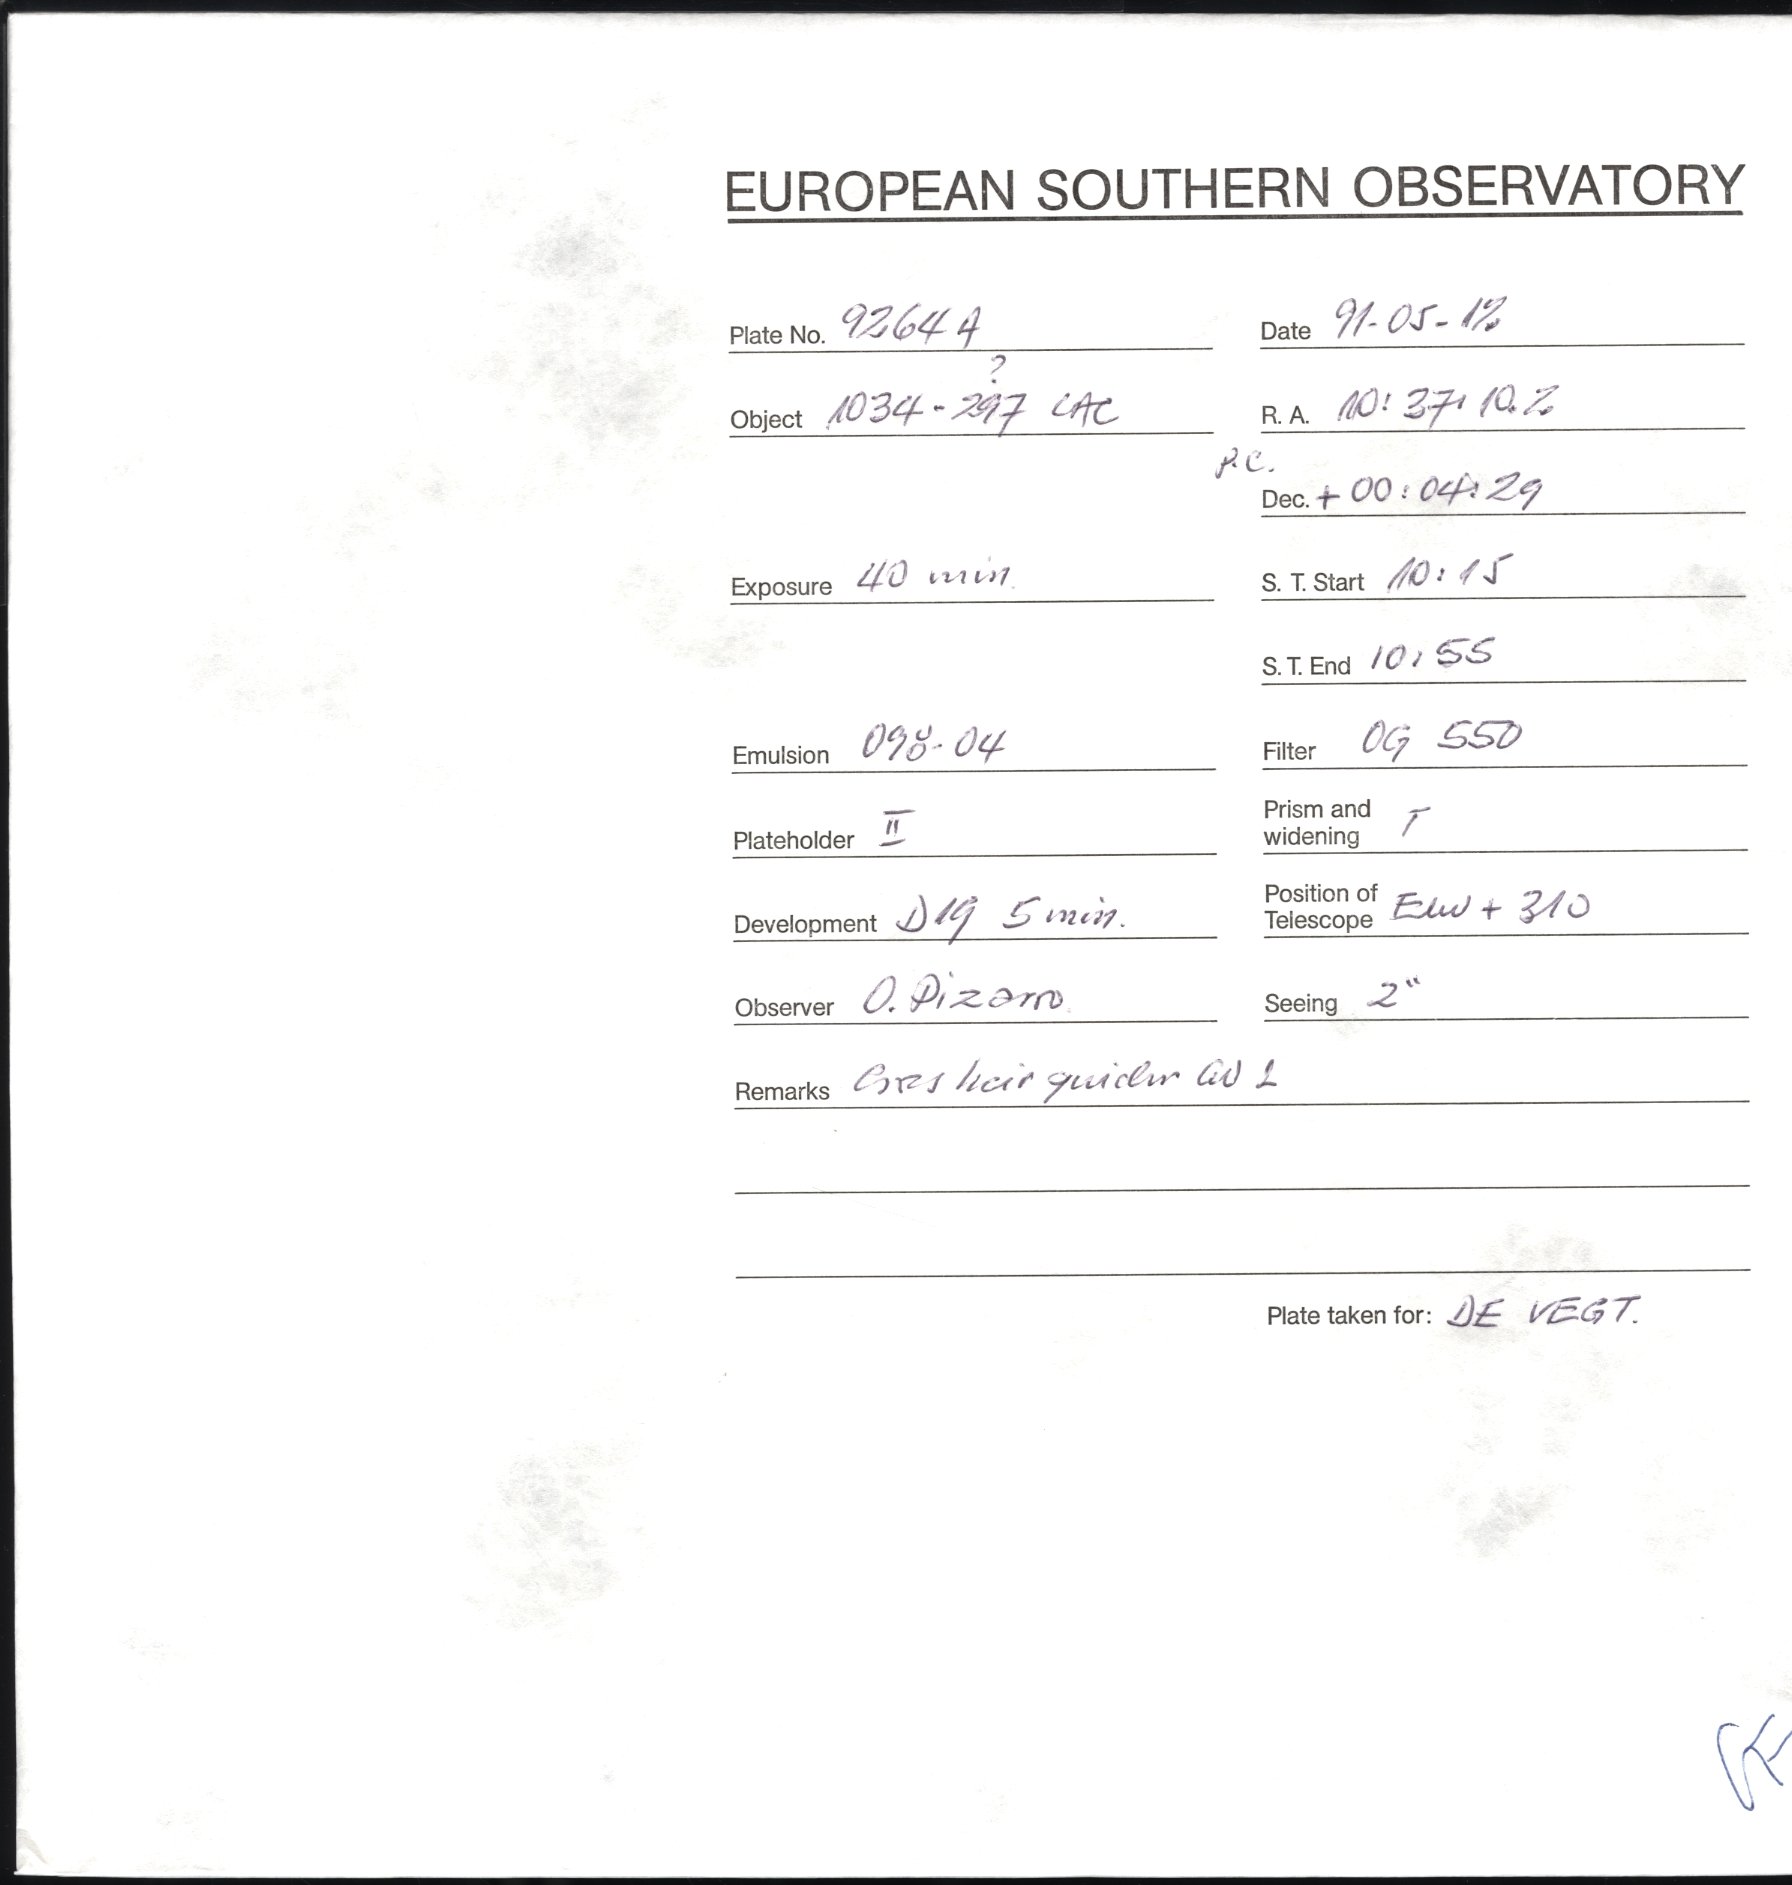 EUROPEAN SOUTHERN OBSERVATORY
Plate No. 9264 A
Date 91-05-12
?
Object 1034-297 CAC
R. A. 10: 37: 10.2
P.C.
Dec. + 00: 04: 29
Exposure 40 min.
S. T. Start 10: 15
S. T. End 10: 55
Emulsion 098-04
Filter OG 550
Plateholder II
Prism and
widening
Development D19 5 min.
Position of
Telescope EW + 310
Observer O. Pizarro
Seeing 2"
Remarks
Plate taken for: DE VEGT.